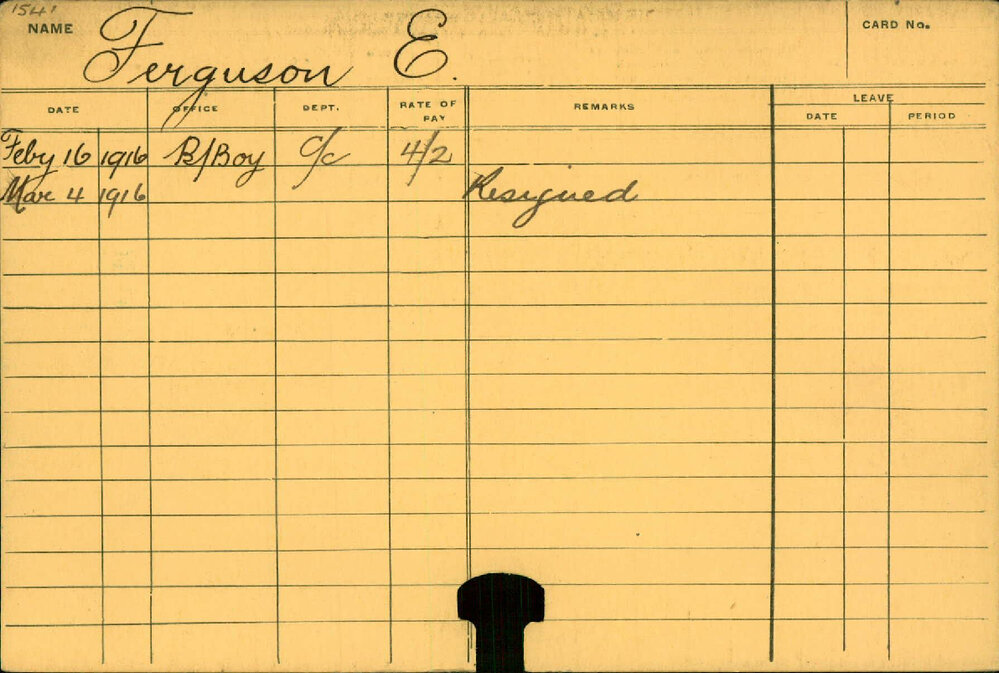 1541
NAME Ferguson E. CARD No.
DATE OFFICE DEPT. RATE OF PAY REMARKS LEAVE
DATE PERIOD
Feby 16 1916 B/Boy C/c 4/2
Mar 4 1916 Resigned